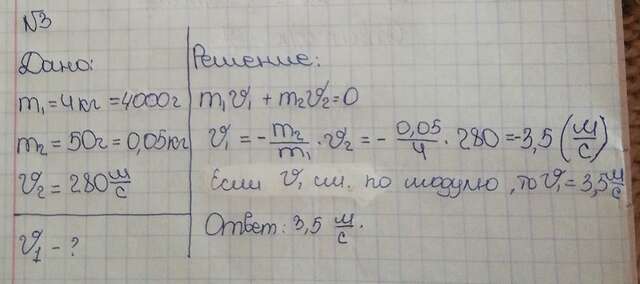 №3
Дано:
m₁=4кг=4000г
m₂=50г=0,05кг
υ₂=280 м/с
υ₁-?
Решение:
m₁υ₁+m₂υ₂=0
υ₁=-m₂/m₁·υ₂=-0,05/4·280=-3,5(м/с)
Если υ₁ см. по модулю, то υ₁=3,5 м/с
Ответ: 3,5 м/с.